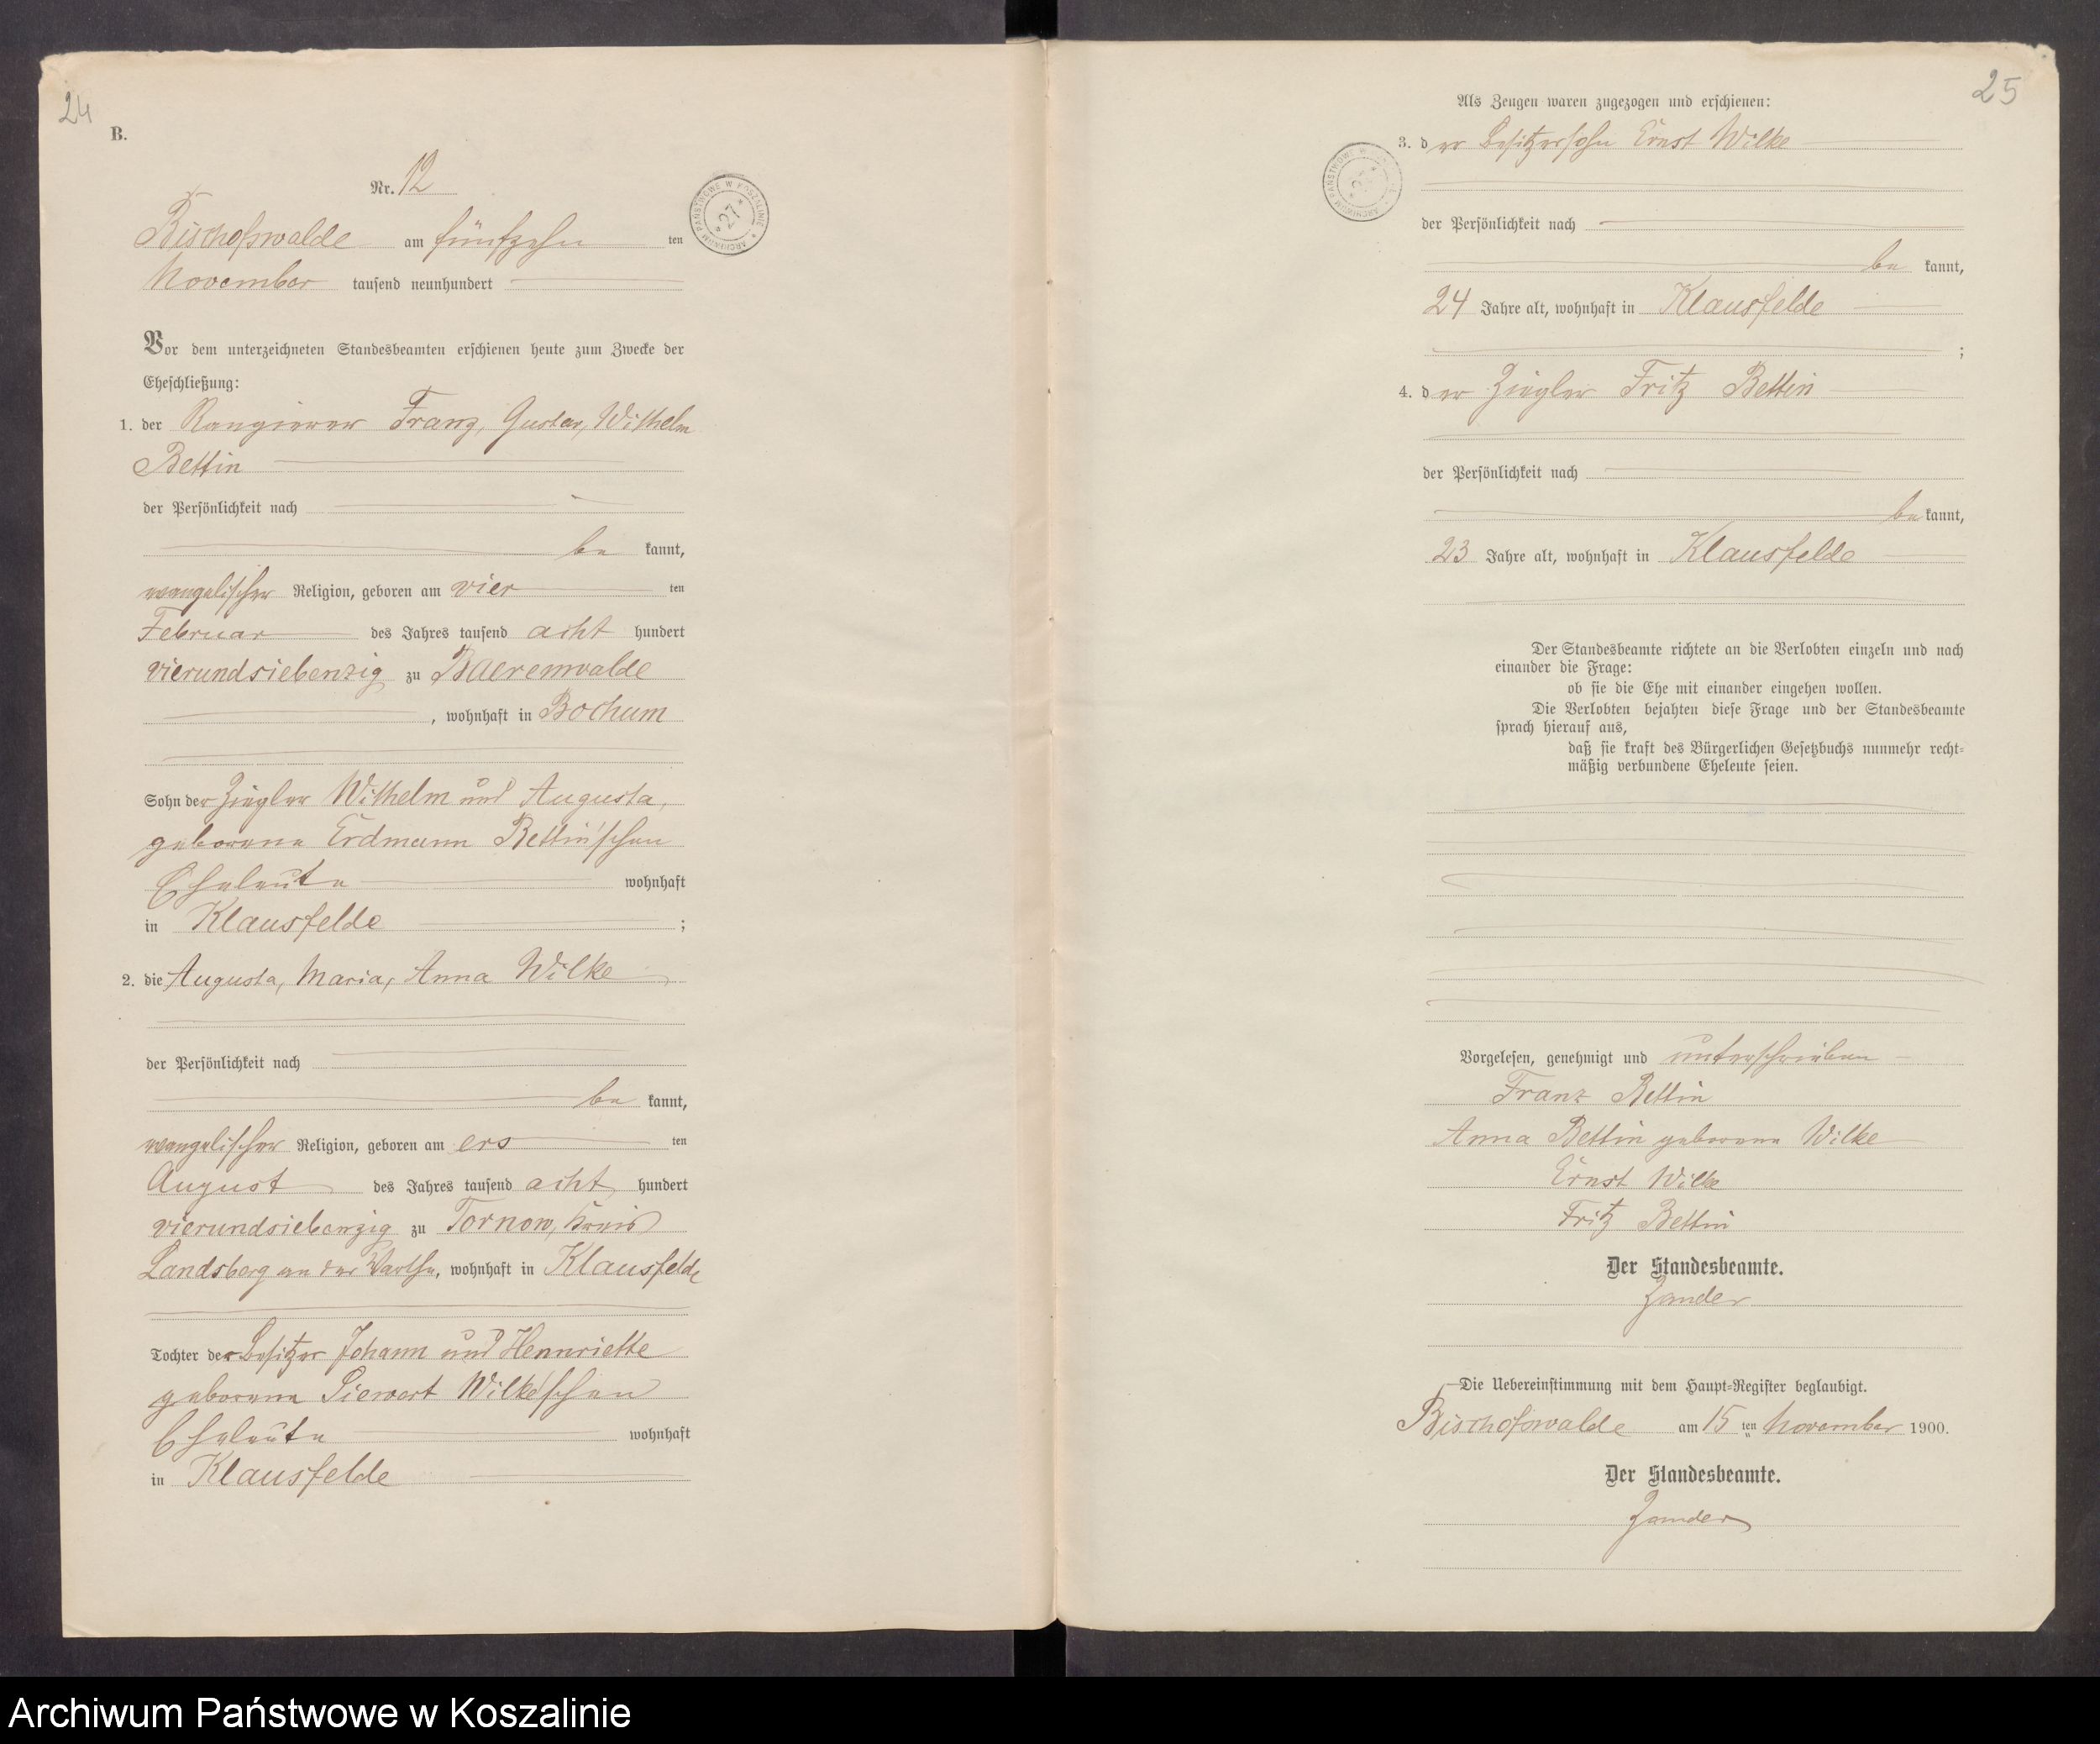 24
B.
Nr. 12
ARCHIWUM PAŃSTWOWE W KOSZALINIE * 27 *
Bischofswalde am fünfzehn ten
November tausend neunhundert
Vor dem unterzeichneten Standesbeamten erschienen heute zum Zwecke der
Eheschließung:
1. der Rangierer Franz, Gustav, Wilhelm
Bettin
der Persönlichkeit nach
be kannt,
evangelischer Religion, geboren am vier ten
Februar des Jahres tausend acht hundert
vierundsiebenzig zu Baerenwalde
, wohnhaft in Bochum
Sohn der Ziegler Wilhelm und Augusta,
geborene Erdmann Bettin'schen
Eheleute wohnhaft
in Klausfelde ;
2. die Augusta, Maria, Anna Wilke
der Persönlichkeit nach
be kannt,
evangelischer Religion, geboren am ers ten
August des Jahres tausend acht hundert
vierundsiebenzig zu Tornow, Kreis
Landsberg an der Warthe, wohnhaft in Klausfelde
Tochter der Besitzer Johann und Hennriette
geborene Siewert Wilke'schen
Eheleute wohnhaft
in Klausfelde
25
Als Zeugen waren zugezogen und erschienen:
3. der Besitzersohn Ernst Wilke
der Persönlichkeit nach
be kannt,
24 Jahre alt, wohnhaft in Klausfelde
;
4. der Ziegler Fritz Bettin
der Persönlichkeit nach
be kannt,
23 Jahre alt, wohnhaft in Klausfelde
Der Standesbeamte richtete an die Verlobten einzeln und nach
einander die Frage:
ob sie die Ehe mit einander eingehen wollen.
Die Verlobten bejahten diese Frage und der Standesbeamte
sprach hierauf aus,
daß sie kraft des Bürgerlichen Gesetzbuchs nunmehr recht-
mäßig verbundene Eheleute seien.
Vorgelesen, genehmigt und unterschrieben
Franz Bettin
Anna Bettin geborene Wilke
Ernst Wilke
Fritz Bettin
Der Standesbeamte.
Zander
Die Uebereinstimmung mit dem Haupt-Register beglaubigt.
Bischofswalde am 15 ten November 1900.
Der Standesbeamte.
Zander
Archiwum Państwowe w Koszalinie